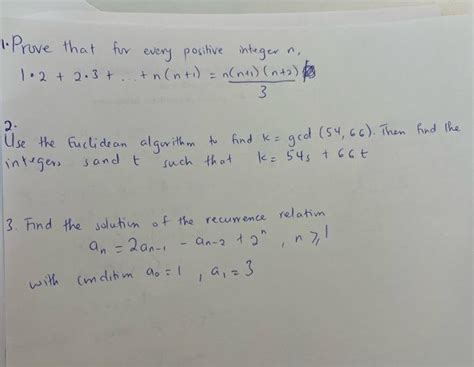 1. Prove that for every positive integer n,
1·2 + 2·3 + ... + n(n+1) = n(n+1)(n+2)
3
2.
Use the Euclidean algorithm to find k = gcd (54, 66). Then find the
integers s and t such that k = 54s + 66t
3. Find the solution of the recurrence relation
aₙ = 2aₙ₋₁ - aₙ₋₂ + 2ⁿ , n ≥ 1
with condition a₀ = 1 , a₁ = 3